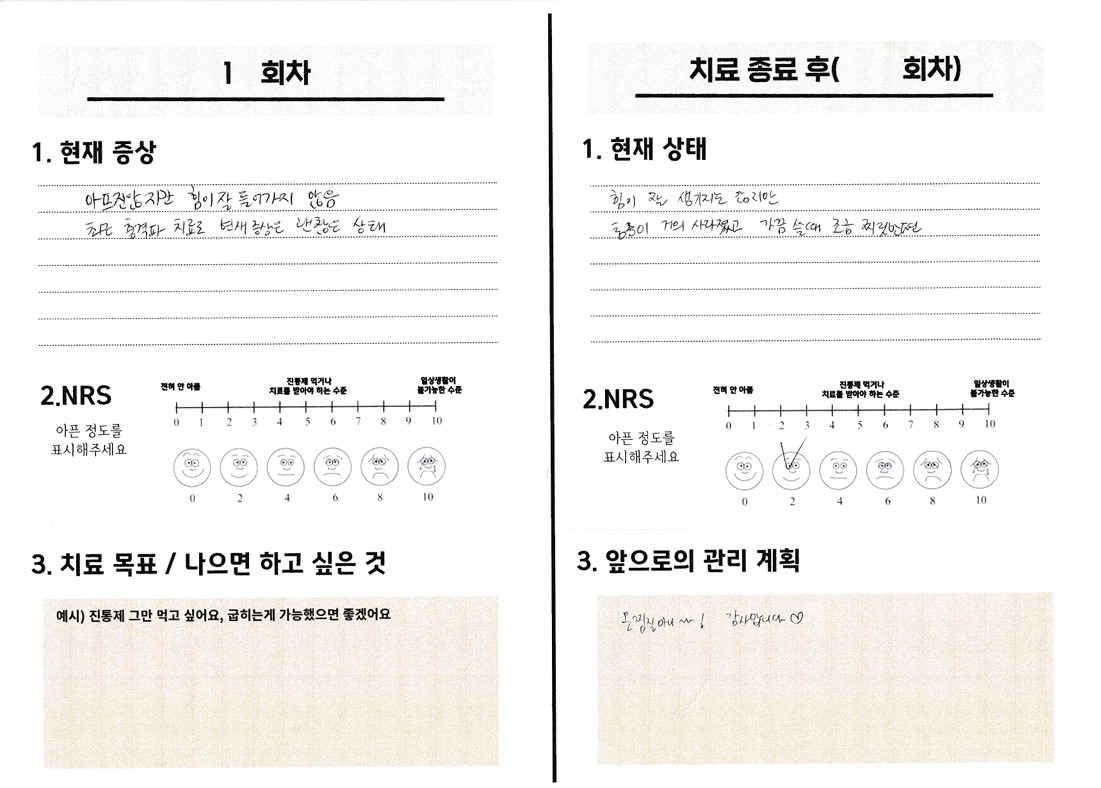 1 회차
1. 현재 증상
아프진않지만 힘이 잘 들어가지 않음
충격파 치료로 현재 증상은 괜찮은 상태
2.NRS
아픈 정도를
표시해주세요
전혀 안 아픔
진통제 먹거나
치료를 받아야 하는 수준
일상생활이
불가능한 수준
0 1 2 3 4 5 6 7 8 9 10
0 2 4 6 8 10
3. 치료 목표 / 나으면 하고 싶은 것
예시) 진통제 그만 먹고 싶어요, 굽히는게 가능했으면 좋겠어요
치료 종료 후( 회차)
1. 현재 상태
힘이 잘
통증이 거의 사라졌고 가끔 쓸때 조금 찌릿한편
2.NRS
아픈 정도를
표시해주세요
전혀 안 아픔
진통제 먹거나
치료를 받아야 하는 수준
일상생활이
불가능한 수준
0 1 2 3 4 5 6 7 8 9 10
0 2 4 6 8 10
3. 앞으로의 관리 계획
온찜질하니~! 감사합니다♡